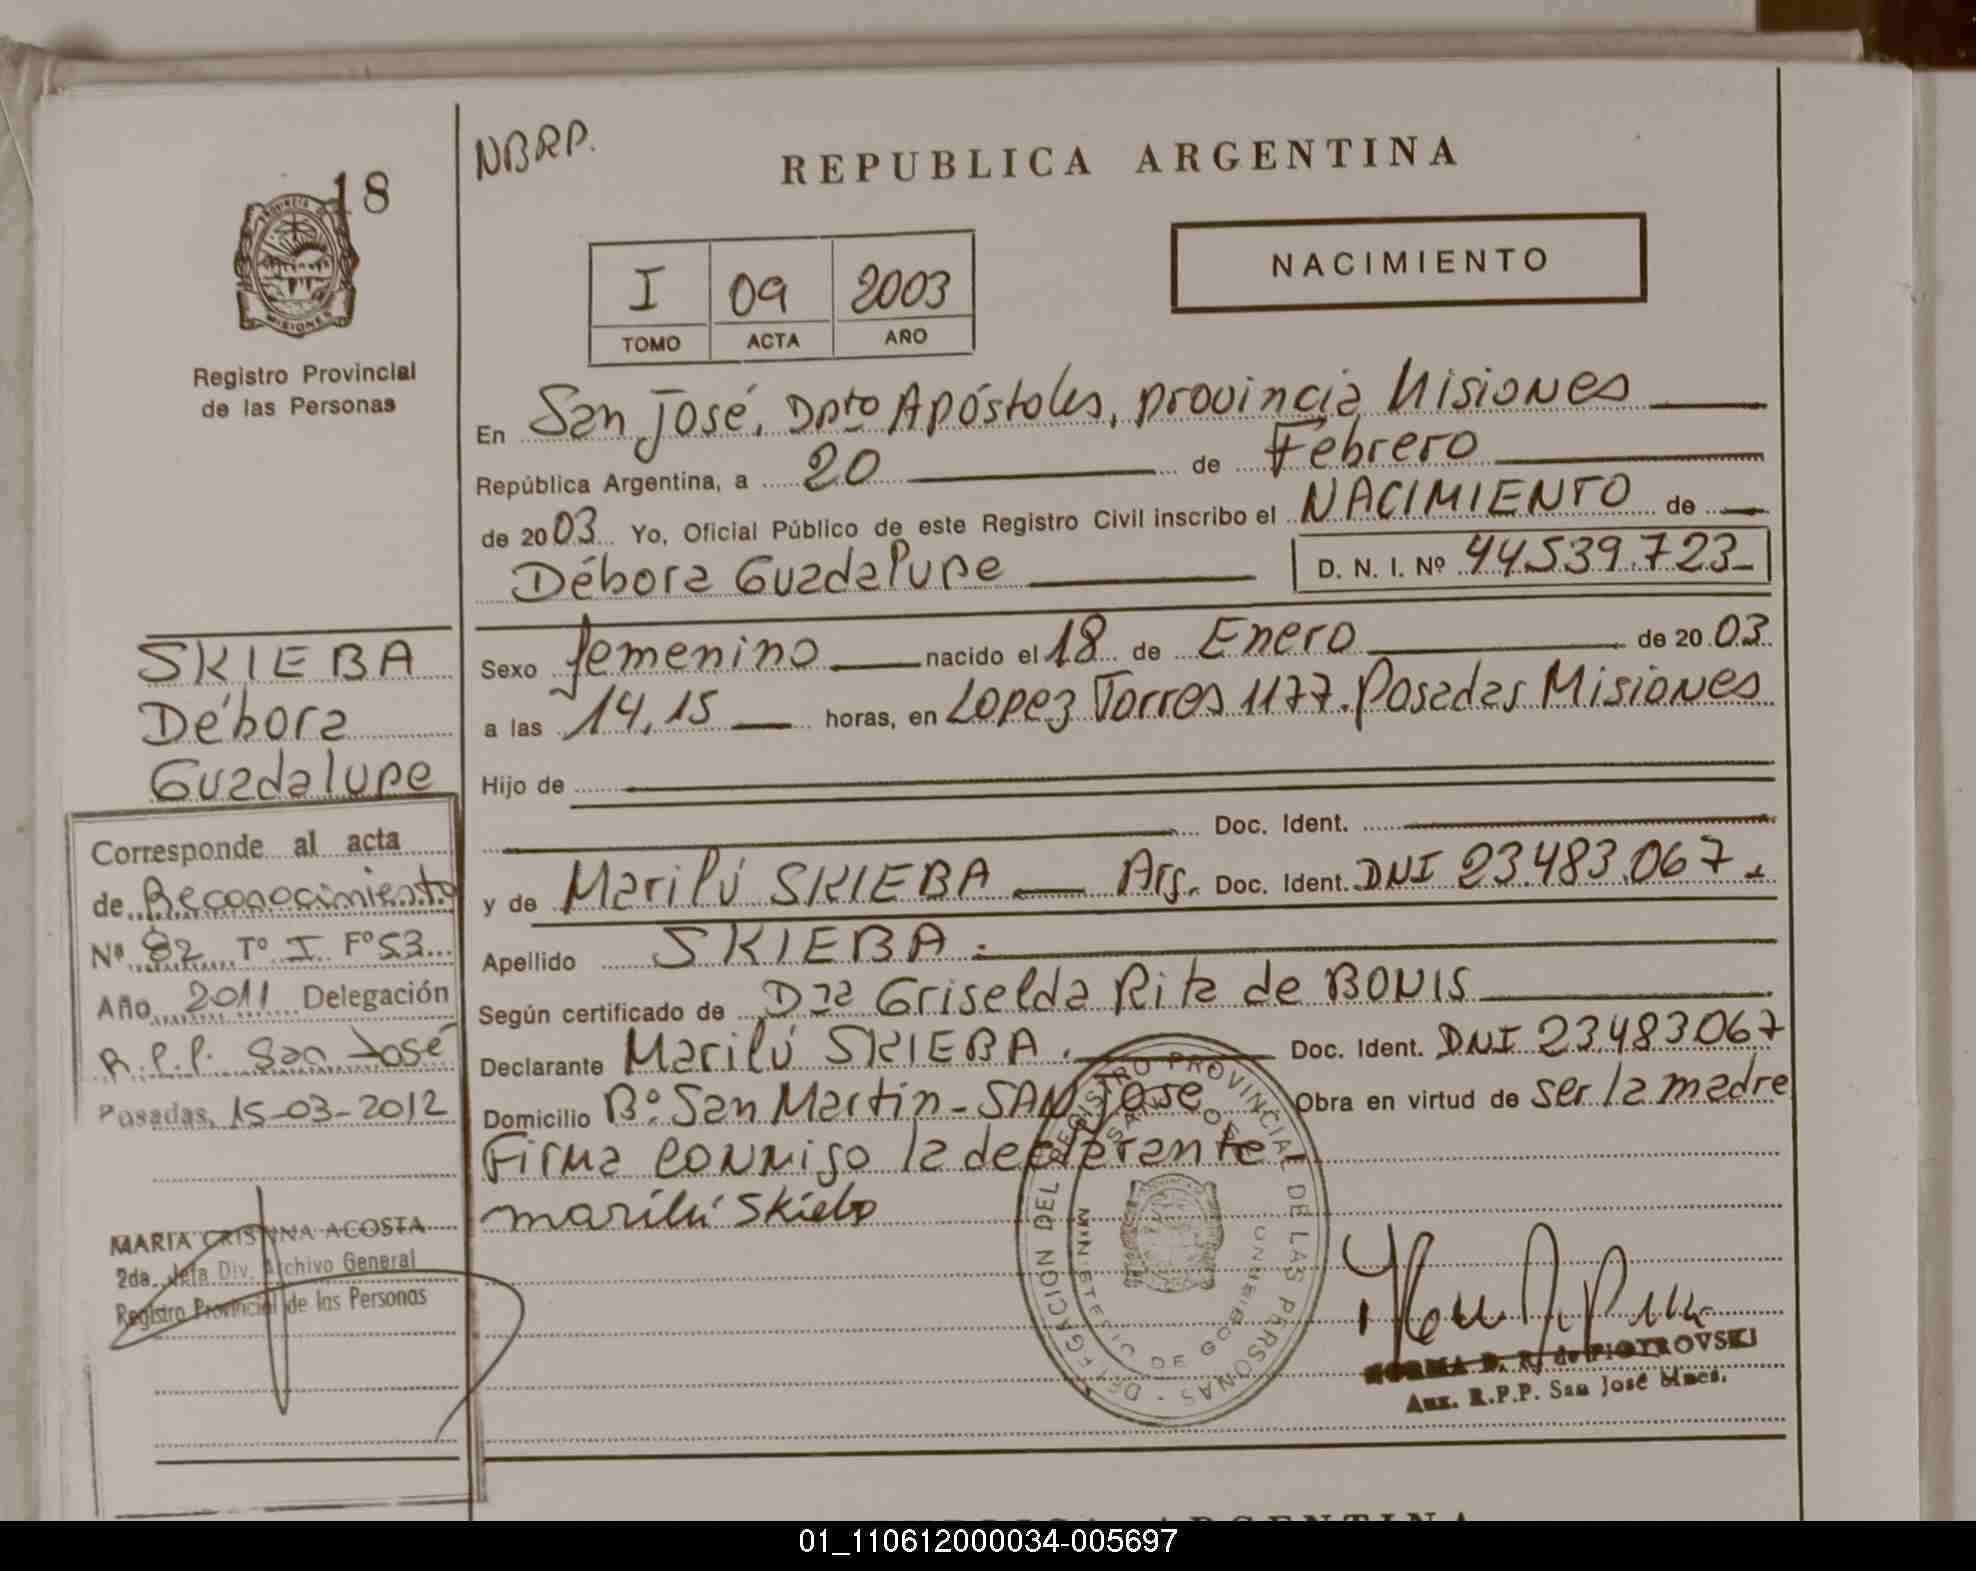 18
PROVINCIA DE
MISIONES
Registro Provincial
de las Personas
NBRP.
REPUBLICA ARGENTINA
I 09 2003
TOMO ACTA AÑO
NACIMIENTO
En San José, Dpto Apóstoles, provincia Misiones
República Argentina, a 20 de Febrero
de 2003 Yo, Oficial Público de este Registro Civil inscribo el NACIMIENTO de
Débora Guadalupe D. N. I. Nº 44.539.723
Sexo femenino nacido el 18 de Enero de 2003
a las 14,15 horas, en Lopez Torres 1177. Posadas Misiones
Hijo de
Doc. Ident.
y de Marilú SKIEBA Arg. Doc. Ident. DNI 23.483.067.
Apellido SKIEBA.
Según certificado de Dra Griselda Rita de BONIS
Declarante Marilú SKIEBA. Doc. Ident. DNI 23.483067
Domicilio Bº San Martin - SAN Jose Obra en virtud de ser la madre
Firma conmigo la declarante
marilú Skieba
DELEGACION DEL REGISTRO PROVINCIAL DE LAS PERSONAS
SAN JOSE
MINISTERIO DE GOBIERNO
NORMA B. R. de PIOTROVSKI
Aux. R.P.P. San José Mnes.
SKIEBA
Débora
Guadalupe
Corresponde al acta
de Reconocimiento
Nº 82 Tº I Fº 53
Año 2011 Delegación
R.P.P. San José
Posadas, 15-03-2012
MARIA CRISTINA ACOSTA
2da. Jefa Div. Archivo General
Registro Provincial de las Personas
REPUBLICA ARGENTINA
01_110612000034-005697